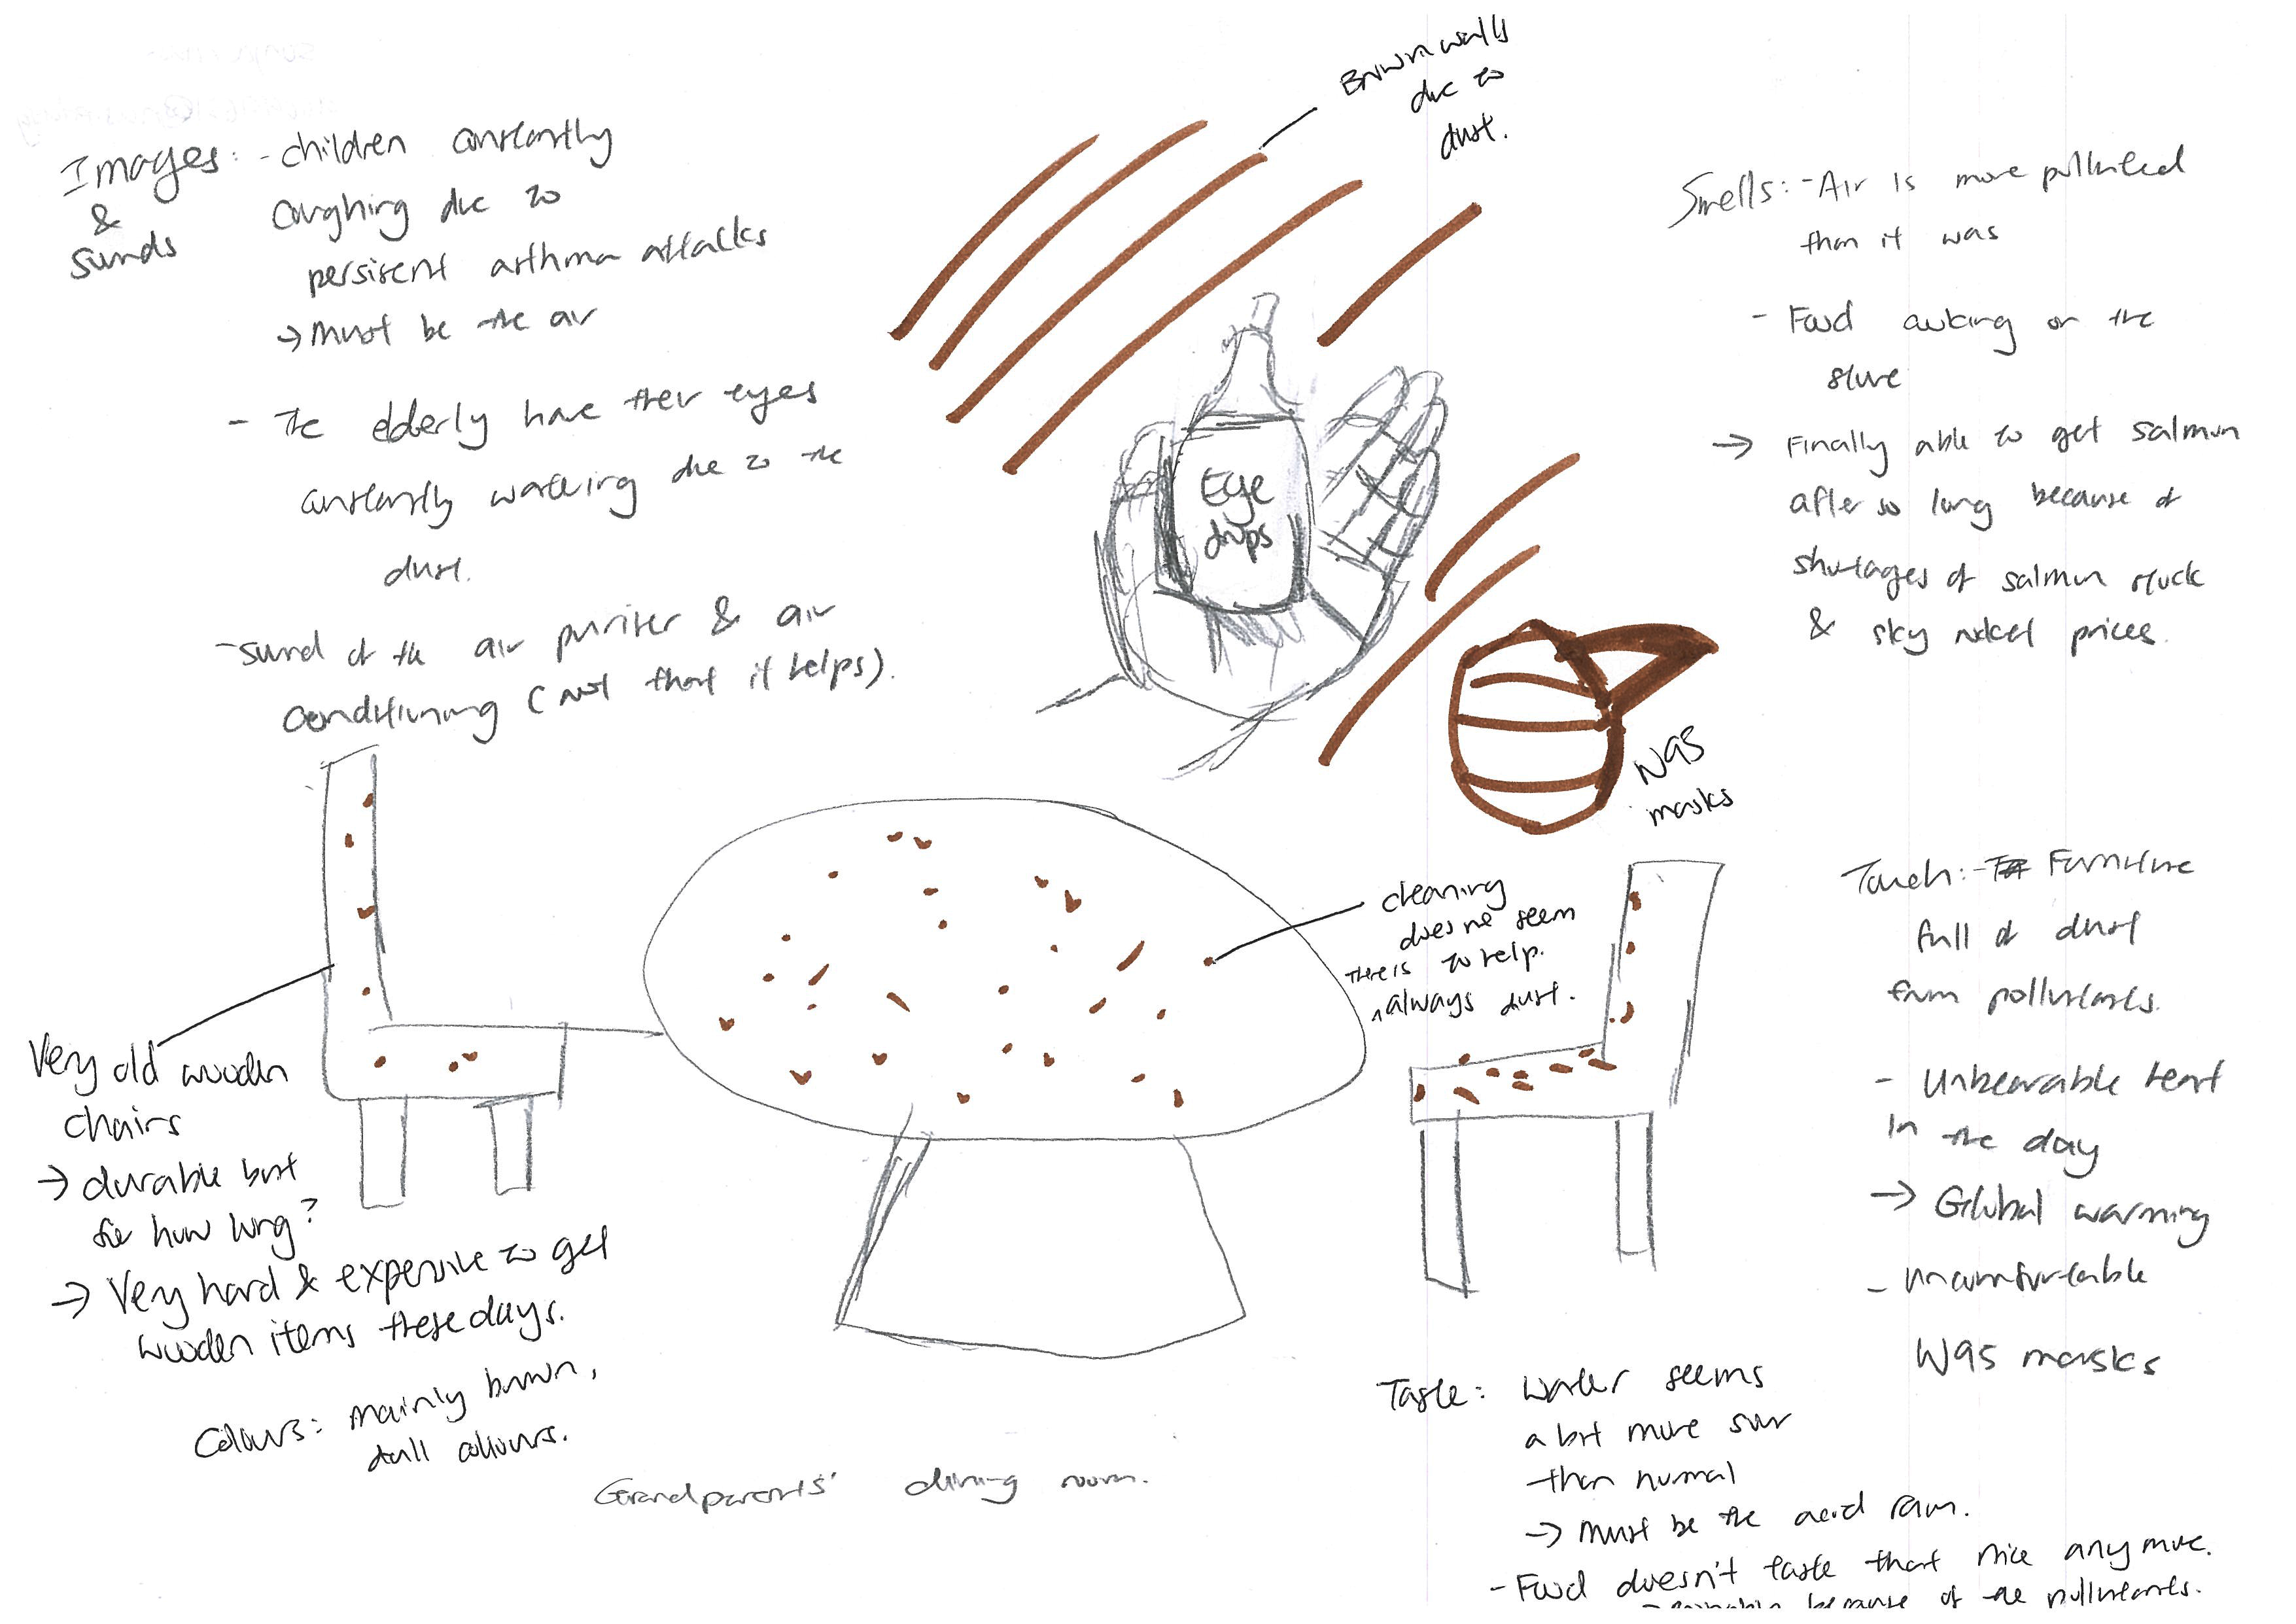 Images: - children constantly
&
sounds
coughing due to
persisent asthma attacks
→ Must be the air
- The elderly have their eyes
constantly watering due to the
dust.
- Sound of the air purifier & air
conditioning (not that it helps).
Brown walls
due to
dust.
Eye
drops
N95
masks
Smells: - Air is more polluted
than it was
- Food cooking on the
stove
→ Finally able to get salmon
after so long because of
shortages of salmon stock
& sky rocket prices.
cleaning
does not seem
to help.
There is
always dust.
Touch: - Furniture
full of dust
from pollutants.
- Unbearable heat
in the day
→ Global warming
- Uncomfortable
N95 masks
Very old wooden
chairs
→ durable but
for how long?
→ Very hard & expensive to get
wooden items these days.
Colours: mainly brown,
dull colours.
Grandparents' dining room.
Taste: Water seems
a bit more sour
than normal
→ Must be the acid rain.
- Food doesn't taste that nice anymore.
because of the pollutants.